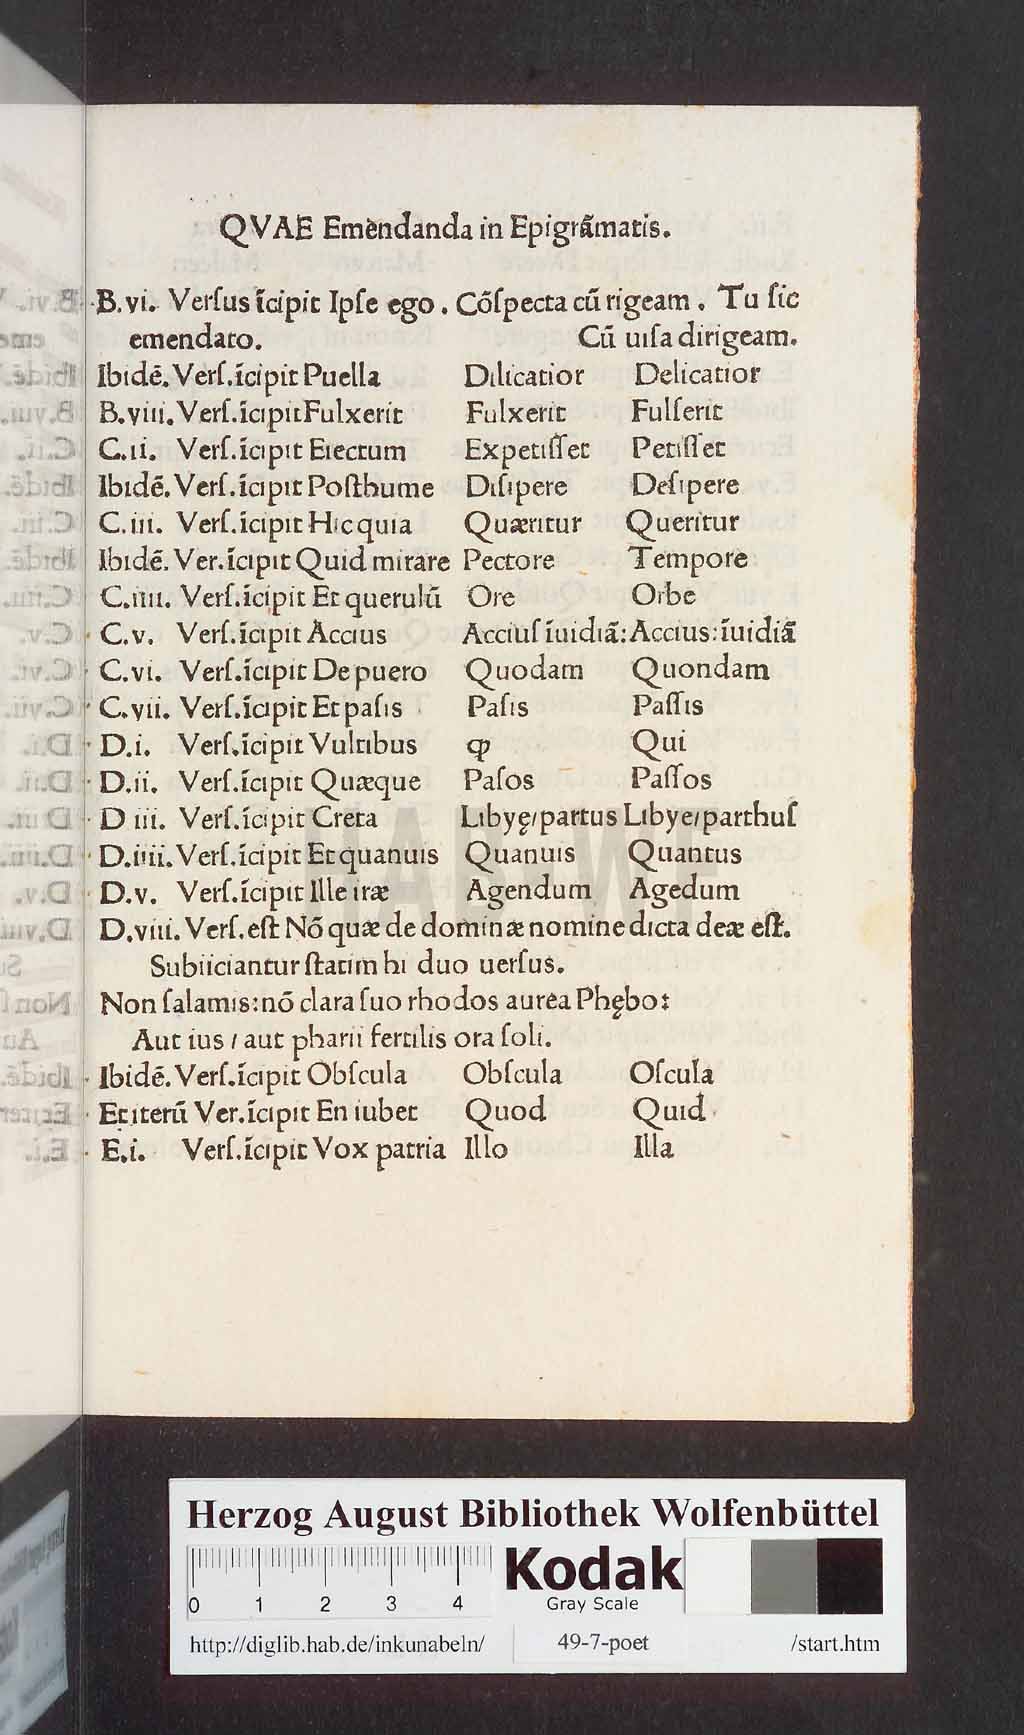 QVAE Emendanda in Epigrãmatis.
B.vi. Verſus ĩcipit Ipſe ego. Cõſpecta cũ rigeam. Tu ſic
emendato. Cũ uiſa dirigeam.
Ibidẽ. Verſ.ĩcipit Puella Dilicatior Delicatior
B.viii. Verſ.ĩcipit Fulxerit Fulxerit Fulſerit
C.ii. Verſ.ĩcipit Eiectum Expetiſſet Petiſſet
Ibidẽ. Verſ.ĩcipit Poſthume Diſipere Deſipere
C.iii. Verſ.ĩcipit Hic quia Quæritur Queritur
Ibidẽ. Ver.ĩcipit Quid mirare Pectore Tempore
C.iiii. Verſ.ĩcipit Et querulũ Ore Orbe
C.v. Verſ.ĩcipit Accius Acciuſ ĩuidiã: Accius: ĩuidiã
C.vi. Verſ.ĩcipit De puero Quodam Quondam
C.vii. Verſ.ĩcipit Et paſis Paſis Paſſis
D.i. Verſ.ĩcipit Vultibus ꝙ Qui
D.ii. Verſ.ĩcipit Quæque Paſos Paſſos
D iii. Verſ.ĩcipit Creta Libyę/partus Libye/parthuſ
D.iiii. Verſ.ĩcipit Et quanuis Quanuis Quantus
D.v. Verſ.ĩcipit Ille iræ Agendum Agedum
D.viii. Verſ.eſt Nõ quæ de dominæ nomine dicta deæ eſt.
Subiiciantur ſtatim hi duo uerſus.
Non ſalamis: nõ clara ſuo rhodos aurea Phębo:
Aut ius / aut pharii fertilis ora ſoli.
Ibidẽ. Verſ.ĩcipit Obſcula Obſcula Oſcula
Et iterũ Ver.ĩcipit En iubet Quod Quid
E.i. Verſ.ĩcipit Vox patria Illo Illa
HAB WF
Herzog August Bibliothek Wolfenbüttel
0 1 2 3 4
Kodak
Gray Scale
http://diglib.hab.de/inkunabeln/ 49-7-poet /start.htm